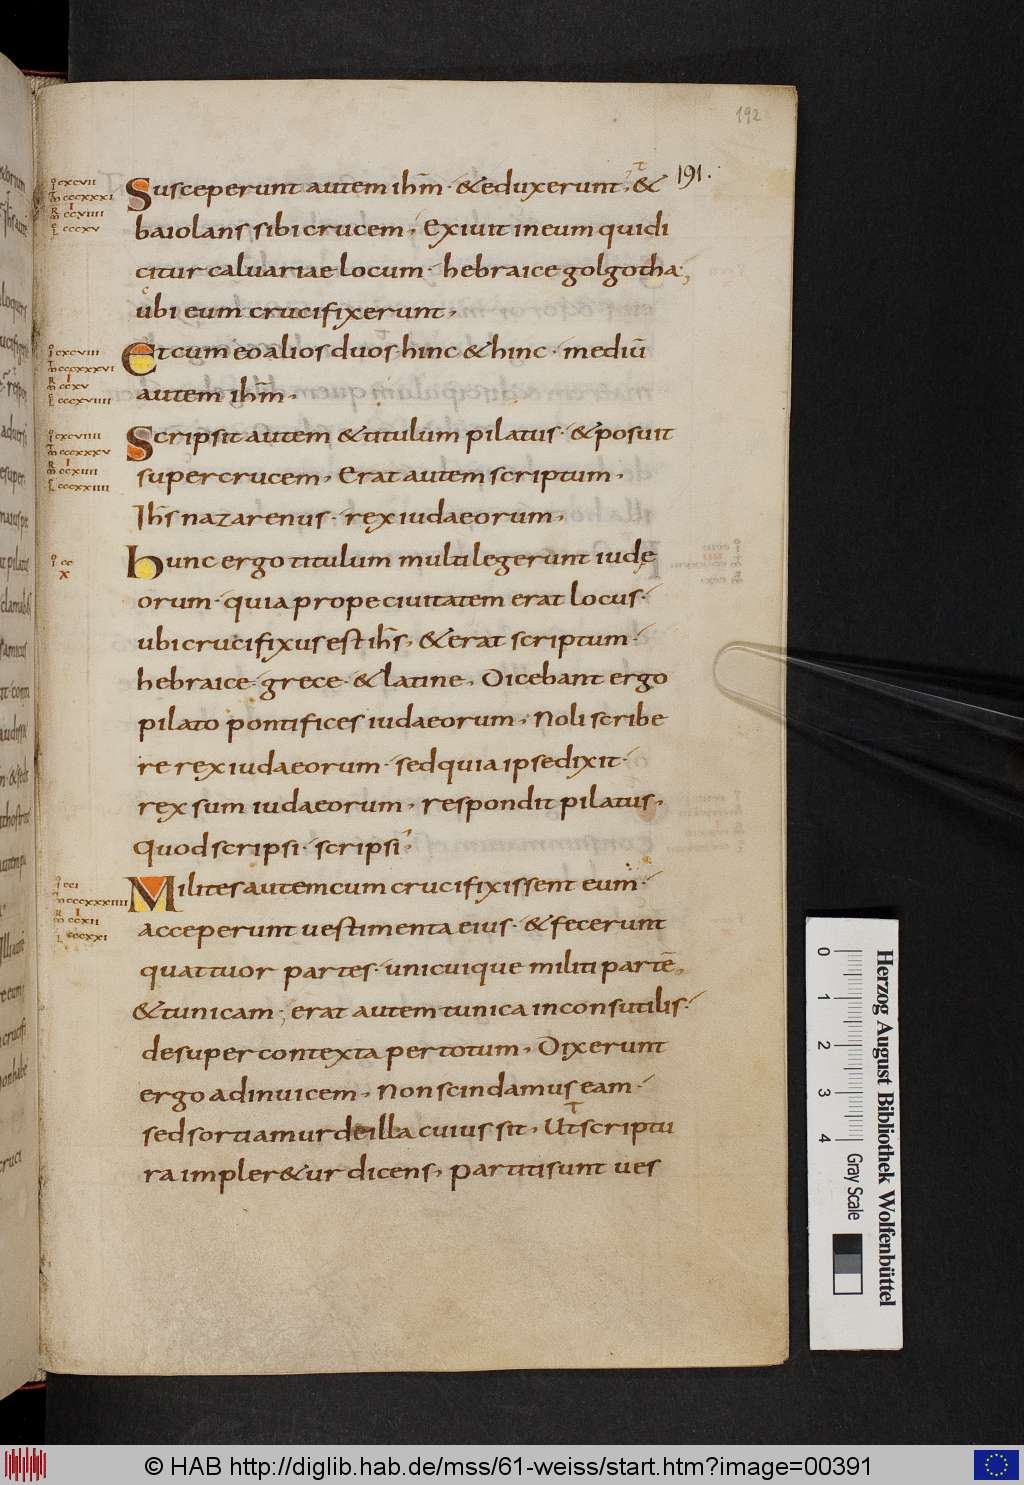 192
191.
Susceperunt autem ihm̄· & eduxerunt; &
baiolans sibi crucem, Exiuit in eum qui di
citur caluariae locum· hebraice golgotha;
ubi eum crucifixerunt,
Et cum eo alios duos hinc & hinc· mediū
autem ihm̄,
Scripsit autem & titulum pilatus· & posuit
super crucem, Erat autem scriptum,
Ihs̄ nazarenus· rex iudaeorum,
hunc ergo titulum multi legerunt iudę
orum· quia prope ciuitatem erat locus·
ubi crucifixus est ihs̄, & erat scriptum·
hebraice· grece· & latine, Dicebant ergo
pilato pontifices iudaeorum, Noli scribe
re rex iudaeorum· sed quia ipse dixit·
rex sum iudaeorum, respondit pilatus,
Quod scripsi· scripsi,
Milites autem cum crucifixissent eum·
acceperunt uestimenta eius· & fecerunt
quattuor partes· unicuique militi partē,
& tunicam; erat autem tunica inconsutilis·
desuper contexta per totum, Dixerunt
ergo ad inuicem, Non scindamus eam·
sed sortiamur de illa cuius sit, Ut scriptu
ra impler&ur dicens, partiti sunt ues
cxcvii
cccxxxi
ccviiii
cccxv
cxcviii
cccxxxvi
ccxv
cccxviiii
cxcviiii
cccxxxv
ccxiiii
cccxxiiii
cc
x
cci
cccxxxiiii
ccxii
cccxxi
0 1 2 3 4
Herzog August Bibliothek Wolfenbüttel
Gray Scale
© HAB http://diglib.hab.de/mss/61-weiss/start.htm?image=00391